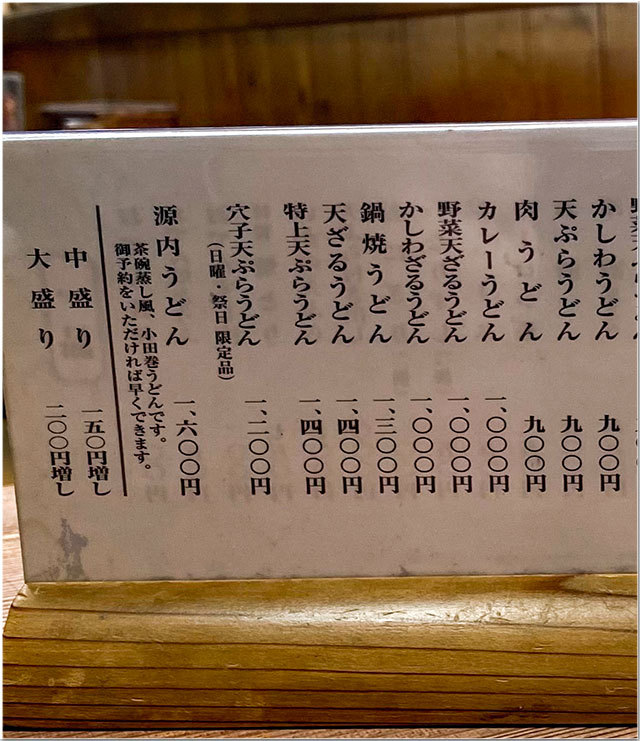 かしわうどん 九〇〇円
天ぷらうどん 九〇〇円
肉うどん 九〇〇円
カレーうどん 一、〇〇〇円
野菜天ざるうどん 一、〇〇〇円
かしわざるうどん 一、〇〇〇円
鍋焼うどん 一、三〇〇円
天ざるうどん 一、四〇〇円
特上天ぷらうどん 一、四〇〇円
穴子天ぷらうどん 一、二〇〇円
（日曜・祭日 限定品）
源内うどん 一、六〇〇円
茶碗蒸し風、小田巻うどんです。
御予約をいただければ早くできます。
中盛り 一五〇円増し
大盛り 二〇〇円増し